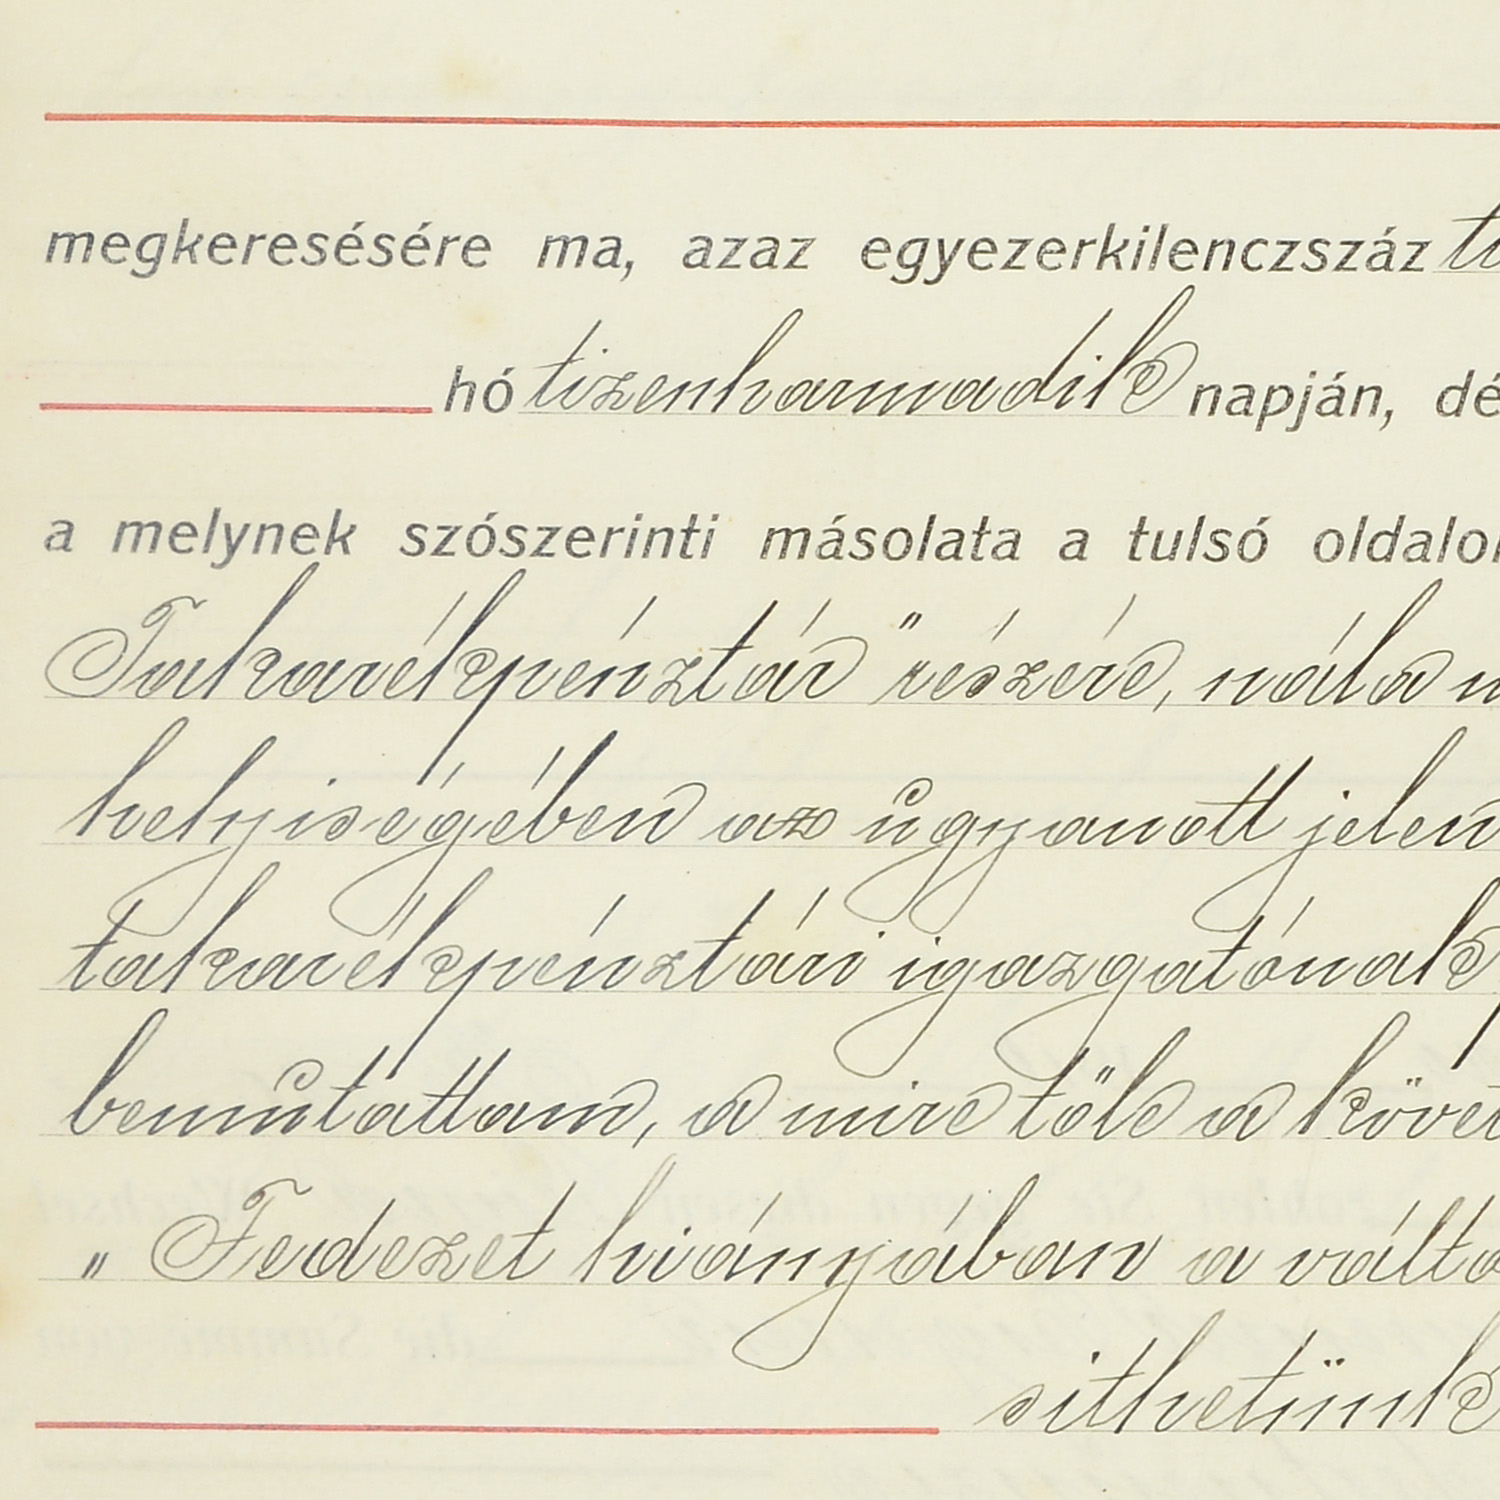 megkeresésére ma, azaz egyezerkilenczszáz
hó tizenharmadik napján, dé
a melynek szószerinti másolata a tulsó oldalon
Takarékpénztár" részére, nála
helyiségében az ugyanott jelen
takarékpénztári igazgatónak
bemutattam, a mire tőle a követ
" Fedezet hiányában a válto
sithetünk